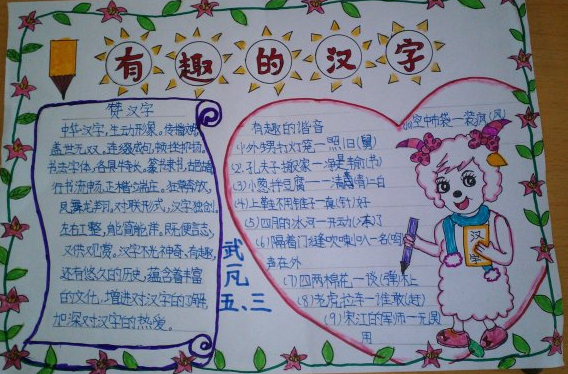 有趣的汉字
赞汉字
中华汉字,生动形象。传播文明,
盖世无双,连缀成句,顿挫抑扬。
书法字体,各具特长,篆书隶书,古色古香,
行书流畅,正楷端庄。狂草奔放,
凤舞龙翔。对联形式,汉字独创。
左右工整,能简能详。既便言志,
又供观赏。汉字不光神奇、有趣,
还有悠久的历史,蕴含着丰富
的文化,增进对汉字的了解,
加深对汉字的热爱。
武一凡
五、三
有趣的谐音
(1)外甥打灯笼一照旧(舅)
(2)孔夫子搬家一净是输(书)
(3)小葱拌豆腐一一清二白
(4)上鞋不用锥子一真(针)好
(5)四月的冰河一开动(冻)了
(6)隔着门缝吹喇叭一名(鸣)
声在外
(7)四两棉花一谈(弹)不上
(8)老虎拉车一谁敢(赶)
(9)宋江的军师一无(吴)
用
空中布袋一装疯(风)
汉字